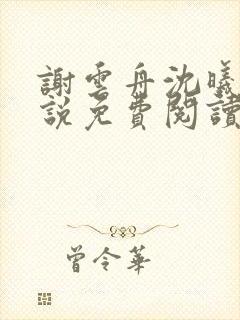 謝雲舟沈曦
說免費閱讀
曾令華